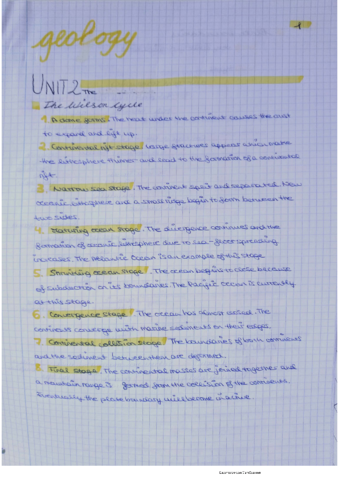 geology
1
UNIT 2 The
The Wilson Cycle
1. A dome forms. The heat under the continent causes the crust
to expand and lift up.
2. Continental rift stage. Large fractures appear which make
the lithosphere thinner and lead to the formation of a continental
rift.
3. Narrow sea stage. The continent split and separated. New
oceanic lithosphere and a small ridge begin to form between the
two sides.
4. Maturing ocean stage. The divergence continues and the
formation of oceanic lithosphere due to sea-floor spreading
increases. The Atlantic Ocean is an example of this stage.
5. Shrinking ocean stage. The ocean begins to close because
of subduction on its boundaries. The Pacific Ocean is currently
at this stage.
6. Convergence stage. The ocean has almost closed. The
continents converge with marine sediments on their edges.
7. Continental collision stage. The boundaries of both continents
and the sediment between them are deformed.
8. Final stage. The continental masses are joined together and
a mountain range is formed from the collision of the continents.
Eventually, the plate boundary will become inactive